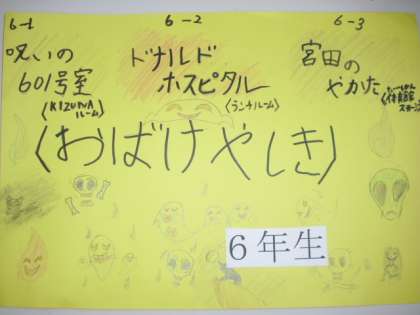 6-1
呪いの
601号室
(KIZUNA
ルーム)
6-2
ドナルド
ホスピタル
(ランチルーム)
6-3
宮田の
やかた
体育館
ステージ
(おばけやしき)
6年生